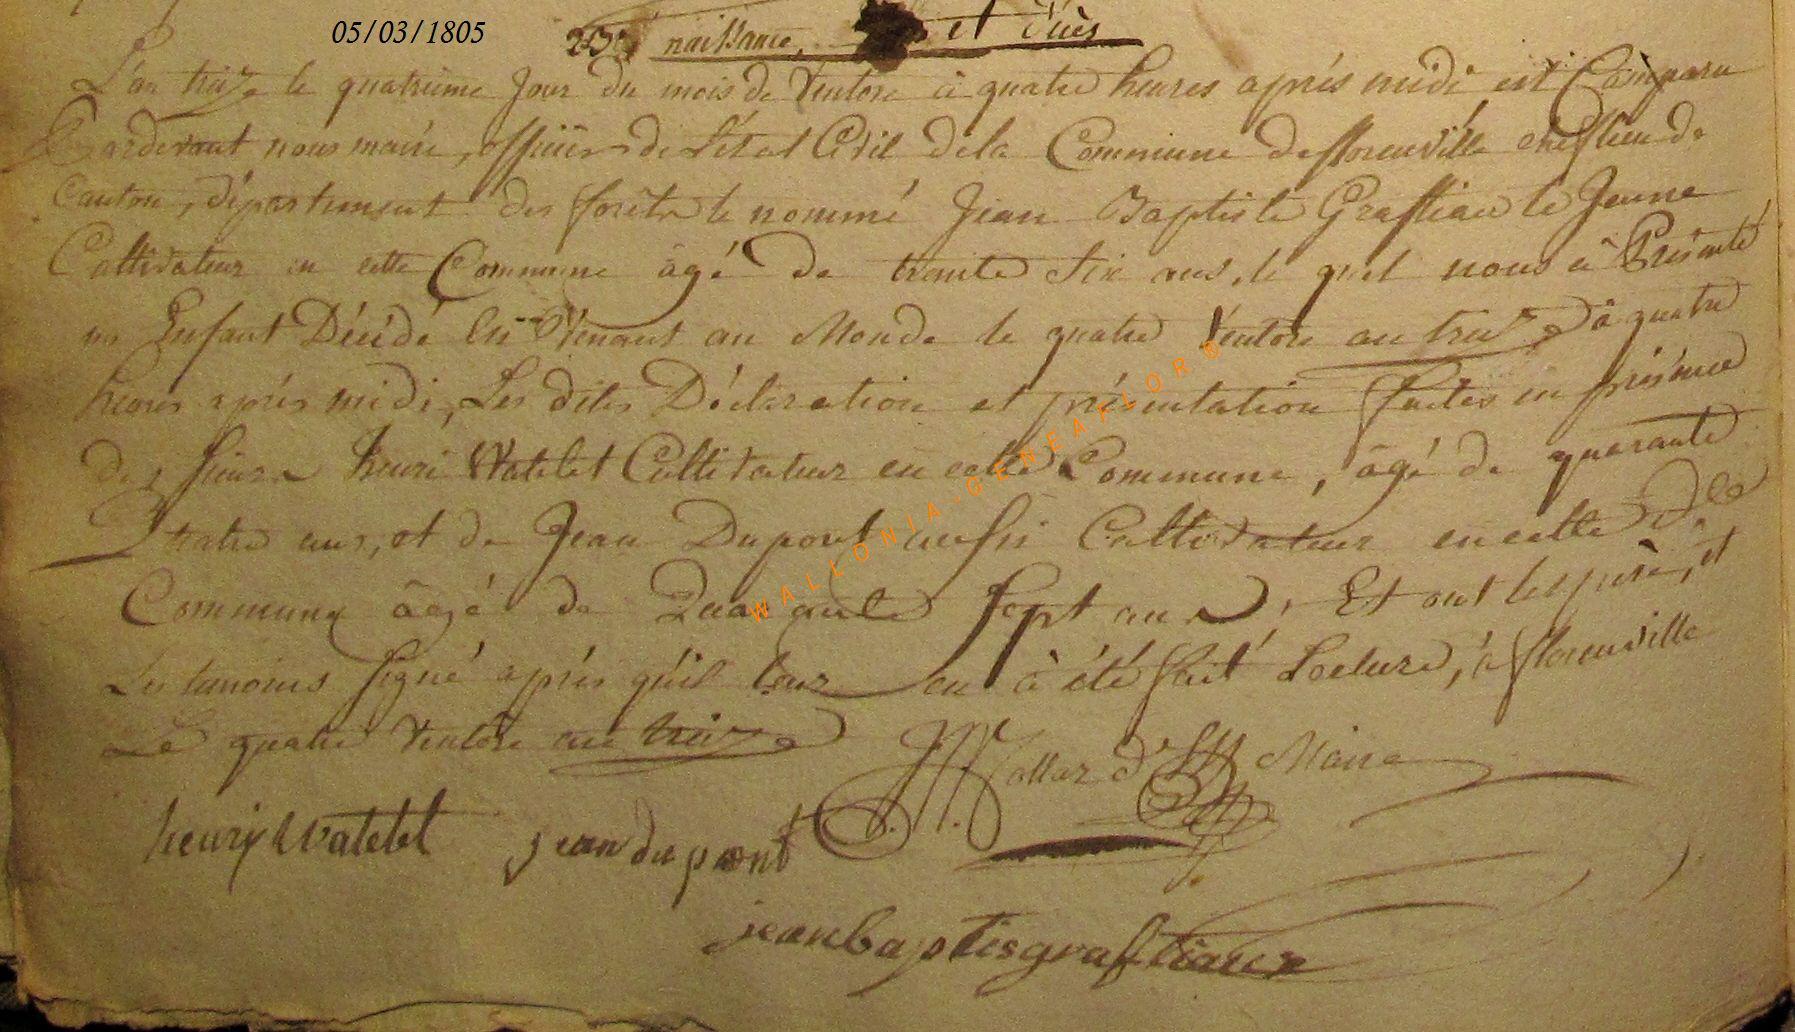 05/03/1805
naissance, et Décès
L'an treize le quatrième Jour du mois de Ventose à quatre heures après midi est Comparu
Pardevant nous maire, officier de L'état Civil dela Commune de florenville chef lieu de
Canton, département des forêts le nommé Jean Baptiste Graftiau le Jeune
Cultivateur en cette Commune âgé de trente Six ans, le quel nous à Présenté
un Enfant Décédé En Venant au Monde le quatre Ventose an treize à quatre
heures après midi, Les dites Déclaration et présentation faites en présence
des sieurs henri Watelet Cultivateur en cette Commune, âgé de quarante
quatre ans, et de Jean Dupont aussi Cultivateur en cette
Commune âgé de Quarante Sept ans, Et ont les père, et
Les temoins Signé après qu'il leur en à été fait Lecture, à florenville
Le quatre Ventose an treize
Maire
henry Watelet jean du pont
jean baptis graftiaux
WALLONIA-GENEAFLOR®